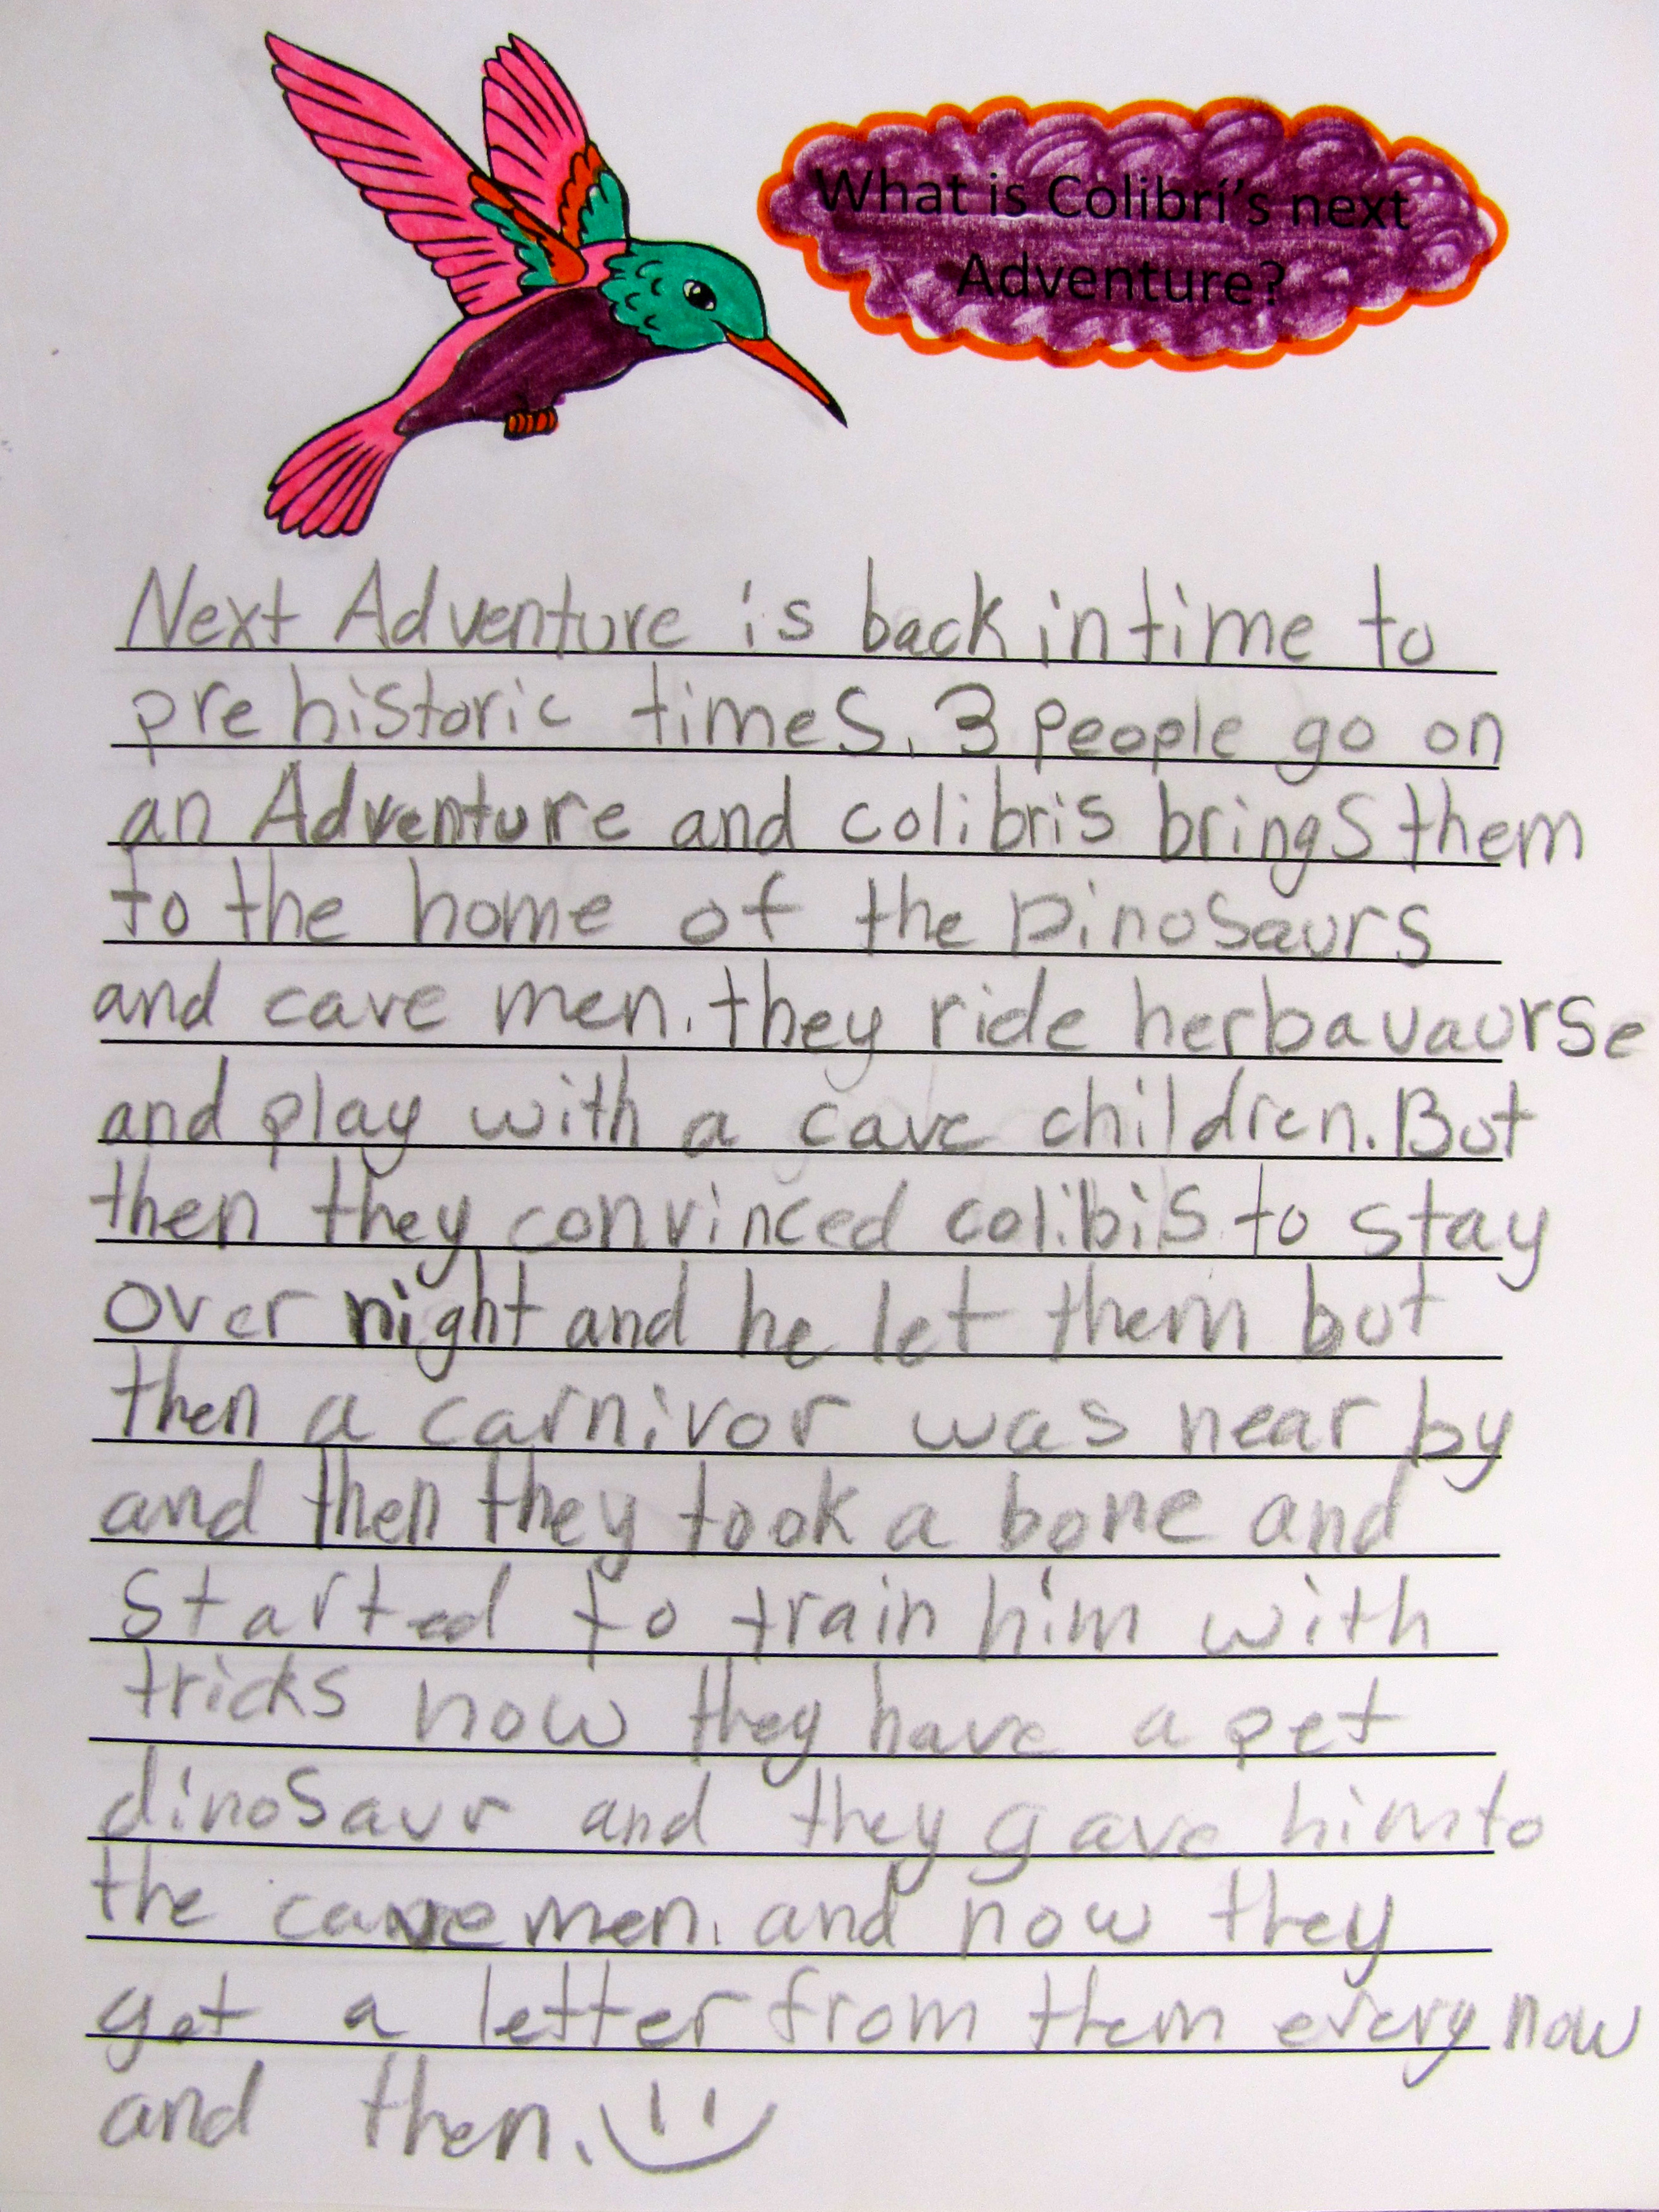 What is Colibrí's next
Adventure?
Next Adventure is back in time to
prehistoric times. 3 people go on
an Adventure and colibris brings them
to the home of the Dinosaurs
and cave men. they ride herbavaurse
and play with a cave children. But
then they convinced colibis to stay
over night and he let them but
then a carnivor was near by
and then they took a bone and
started to train him with
tricks now they have a pet
dinosaur and they gave him to
the cave men. and now they
get a letter from them every now
and then.